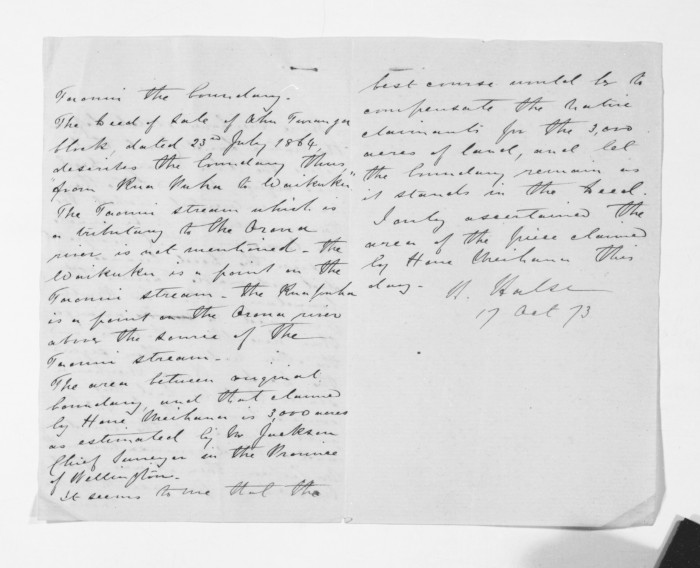 Taonui the boundary.
The Deed of Sale of Ahu Turanga
block, dated 23rd July 1864,
describes the boundary thus
"from Rua Puha to Waikuku"
The Taonui stream which is
a tributary to the Oroua
river is not mentioned - the
Waikuku is a point on the
Taonui stream - the Ruapuha
is a point on the Oroua river
above the source of the
Taonui stream -
The area between original
boundary and that claimed
by Hone Meihana is 3,000 acres
as estimated by Mr Jackson
Chief Surveyor in the Province
of Wellington.
It seems to me that the
best course would be to
compensate the Native
claimants for the 3,000
acres of land, and let
the boundary remain as
it stands in the Deed.
I only ascertained the
area of the piece claimed
by Hone Meihana this
day. H. Halse
17 Oct 73